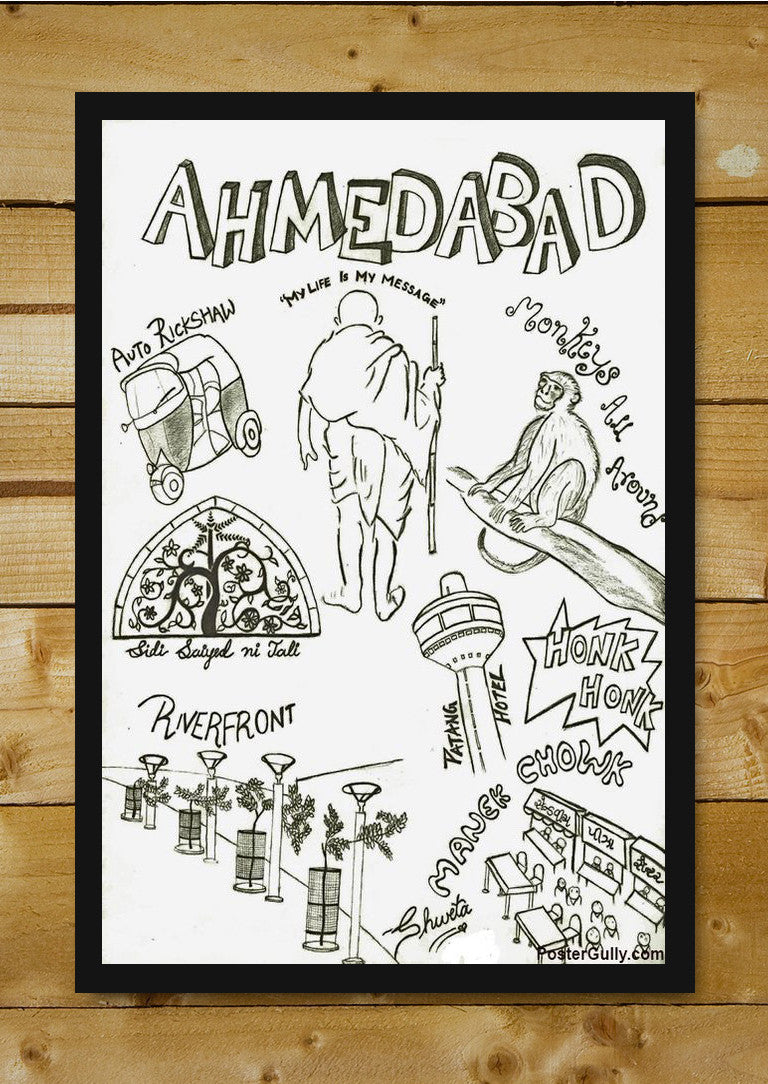 AHMEDABAD
"MY LIFE IS MY MESSAGE"
AUTO RICKSHAW
Monkeys All Around
Sidi Saiyed ni Jali
PATANG HOTEL
HONK
HONK
RIVERFRONT
MANEK CHOWK
પીઝા
Shweta
PosterGully.com